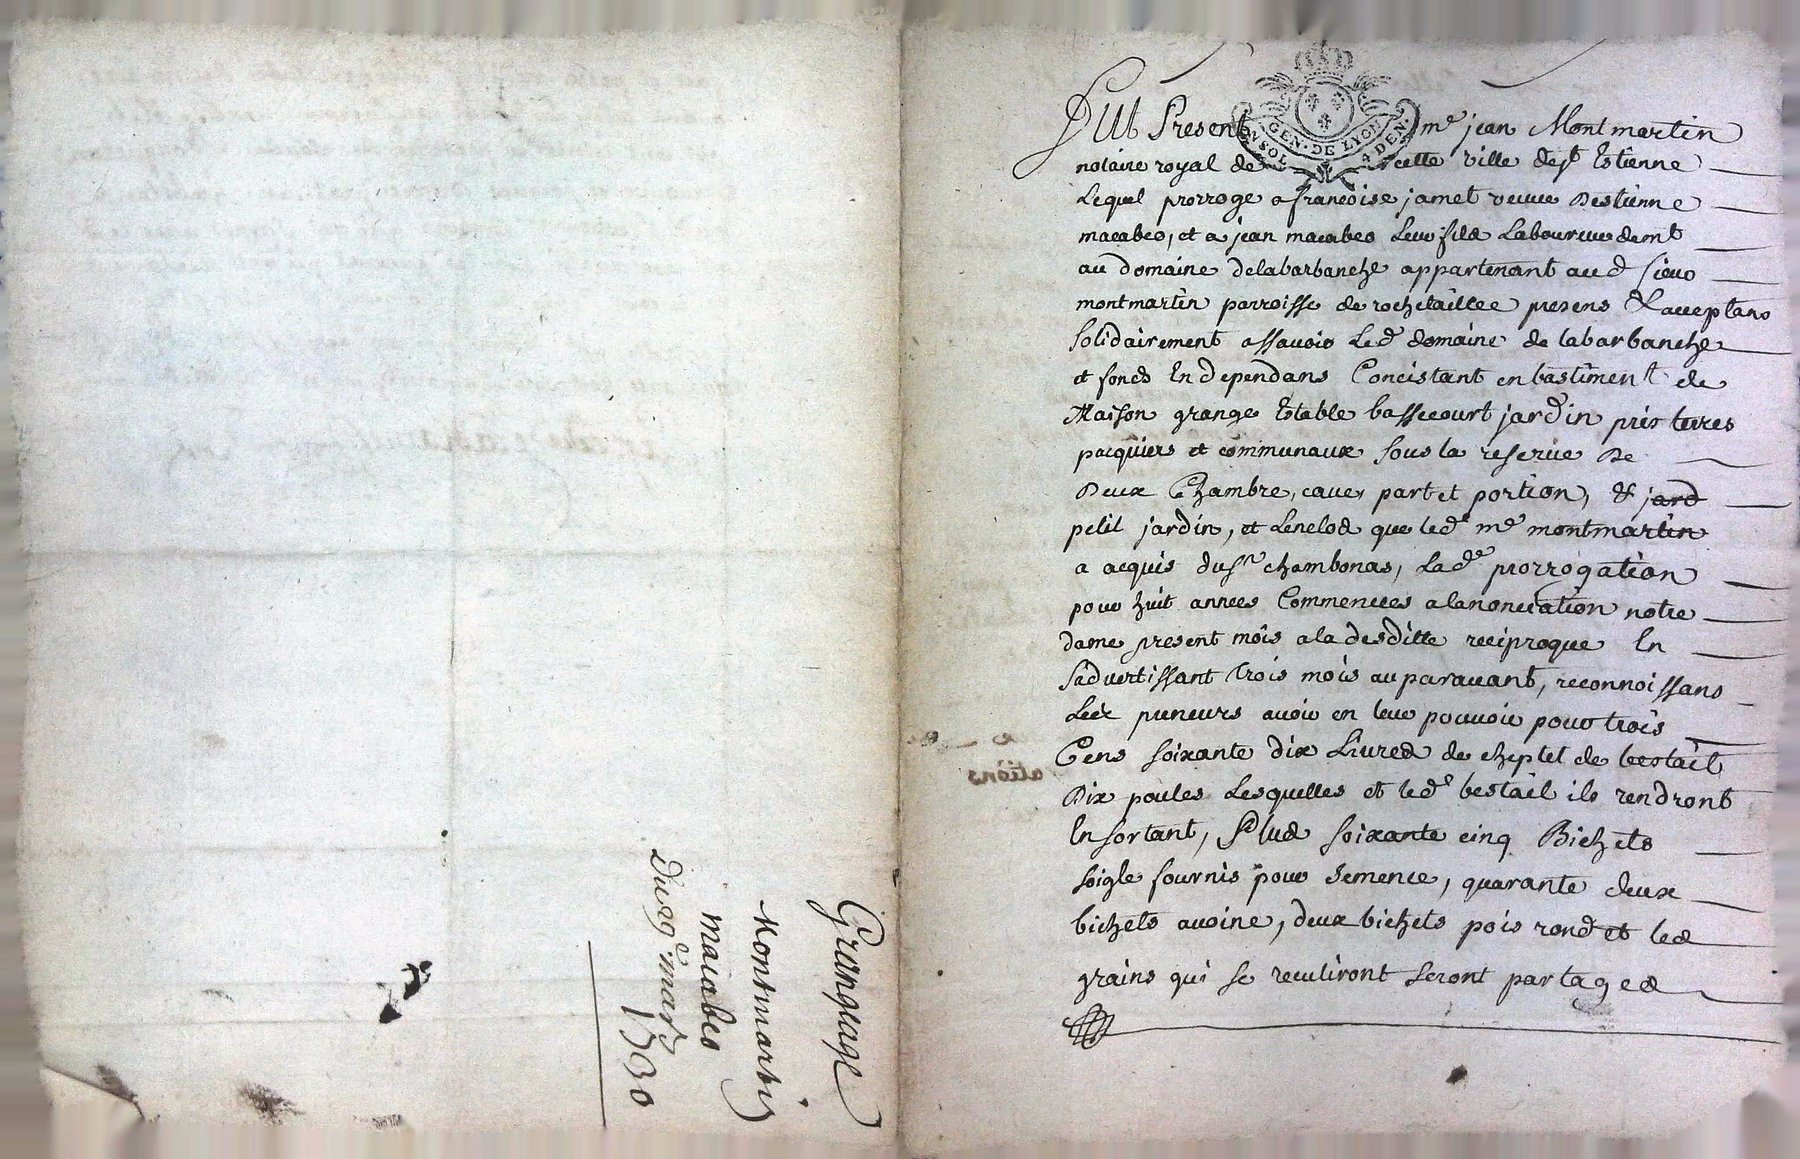 Grangeage
Montmartin
macabeo
Du 29e mars 1730
GEN. DE LYON
UN SOL 4 DEN.
Fut Present me jean Montmartin
notaire royal de cette ville de st Estienne
Lequel prorroge a francoise jamet veuve Destienne
macabeo, et a jean macabeo Leur fils Laboureur demt
au domaine delabarbanche appartenant aud sieur
montmartin parroisse de rochetaillee presens & acceptans
solidairement assavoir Led domaine de labarbanche
et fonds En dependans Concistant en bastiment de
Maison grange Estable bassecourt jardin prés terres
pacquiers et communaux sous la reserve De
Deux Chambre, cave, part et portion, & jard
petit jardin, et Lenclos que led me montmartin
a acquis du sr chambonas, Lade prorrogation
pour huit annees Commencees a lanonciation notre
dame present mois a la desditte reciproque En
sadvertissant trois mois auparavant, reconnoissans
Lesd preneurs avoir en leur pouvoir pour trois
Cens soixante dix Livres de cheptel de bestail
Dix poules Lesquelles et led bestail ils rendront
En sortant, Plus soixante cinq Bichets
soigle fournis pour semence, quarante deux
bichets avoine, deux bichets pois rond et les
grains qui se reculiront seront partages